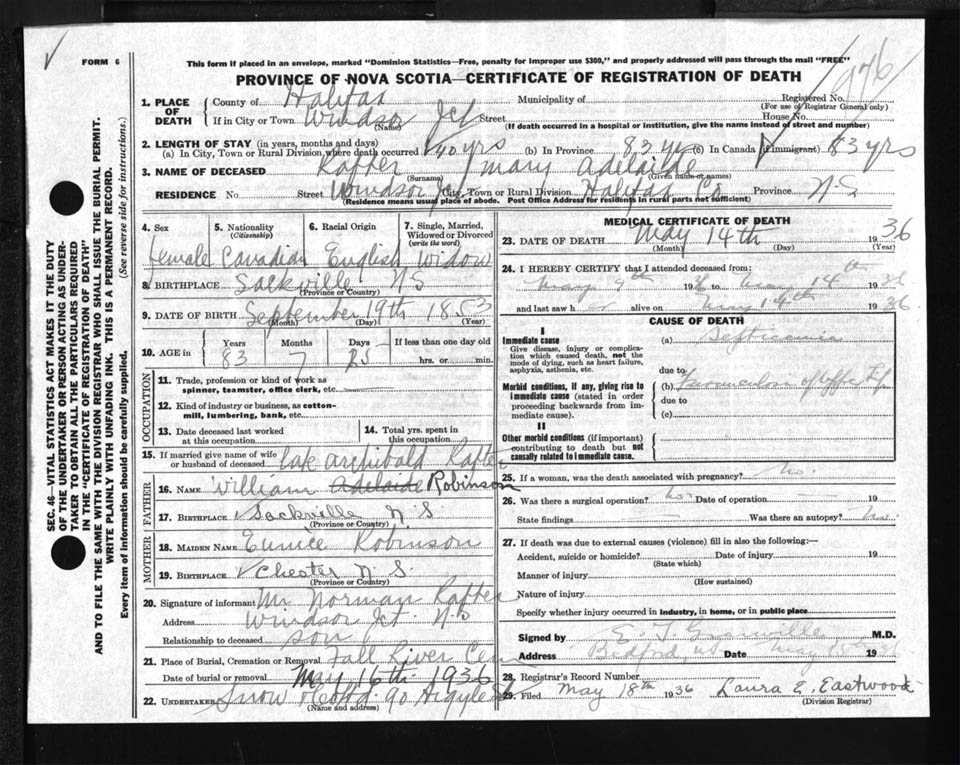 FORM 6
This form if placed in an envelope, marked "Dominion Statistics—Free, penalty for improper use $300," and properly addressed will pass through the mail "FREE"
PROVINCE OF NOVA SCOTIA—CERTIFICATE OF REGISTRATION OF DEATH
SEC. 46—VITAL STATISTICS ACT MAKES IT THE DUTY
OF THE UNDERTAKER OR PERSON ACTING AS UNDER-
TAKER TO OBTAIN ALL THE PARTICULARS REQUIRED
IN THE "CERTIFICATE OF REGISTRATION OF DEATH"
AND TO FILE THE SAME WITH THE DIVISION REGISTRAR WHO SHALL ISSUE THE BURIAL PERMIT.
WRITE PLAINLY WITH UNFADING INK. THIS IS A PERMANENT RECORD.
Every item of information should be carefully supplied. (See reverse side for instructions.)
1. PLACE OF DEATH
County of Halifax Municipality of Registered No.
(For use of Registrar General only)
If in City or Town Windsor Jct Street House No.
(Name) (If death occurred in a hospital or institution, give the name instead of street and number)
2. LENGTH OF STAY (in years, months and days)
(a) In City, Town or Rural Division where death occurred 40 yrs (b) In Province 83 yrs (c) In Canada (if immigrant) 83 yrs
3. NAME OF DECEASED Rafter Mary Adelaide
(Surname) (Given name or names)
RESIDENCE No. Street Windsor Jct City, Town or Rural Division Halifax Co Province N-S
(Residence means usual place of abode. Post Office Address for residents in rural parts not sufficient)
4. Sex 5. Nationality (Citizenship) 6. Racial Origin 7. Single, Married, Widowed or Divorced (write the word)
Female Canadian English Widow
8. BIRTHPLACE Sackville N S
(Province or Country)
9. DATE OF BIRTH September 19th 1853
(Month) (Day) (Year)
10. AGE in Years Months Days If less than one day old
83 7 25 hrs. or min.
OCCUPATION
11. Trade, profession or kind of work as
spinner, teamster, office clerk, etc.
12. Kind of industry or business, as cotton-
mill, lumbering, bank, etc.
13. Date deceased last worked
at this occupation
14. Total yrs. spent in
this occupation
15. If married give name of wife
or husband of deceased late Archibald Rafter
FATHER
16. NAME William Adelaide Robinson
17. BIRTHPLACE Sackville N.S.
(Province or Country)
MOTHER
18. MAIDEN NAME Eunice Robinson
19. BIRTHPLACE Chester N.S.
(Province or Country)
20. Signature of informant Mr Norman Rafter
Address Windsor Jct N-S
Relationship to deceased son
21. Place of Burial, Cremation or Removal Fall River Cem
Date of burial or removal May 16th 1936
22. UNDERTAKER Snow & Co Ltd 90 Argyle St
(Name and address)
MEDICAL CERTIFICATE OF DEATH
23. DATE OF DEATH May 14th 1936
(Month) (Day) (Year)
24. I HEREBY CERTIFY that I attended deceased from:
May 9th 1936 to May 14th 1936
and last saw h er alive on May 14th 1936
CAUSE OF DEATH
I
Immediate cause
Give disease, injury or complication which caused death, not the mode of dying, such as heart failure, asphyxia, asthenia, etc.
(a) Septicemia
due to
Morbid conditions, if any, giving rise to immediate cause (stated in order proceeding backwards from immediate cause).
(b) Furunculosis of upper lip
due to
(c)
II
Other morbid conditions (if important) contributing to death but not causally related to immediate cause.
25. If a woman, was the death associated with pregnancy? No.
26. Was there a surgical operation? No Date of operation — 19
State findings — Was there an autopsy? No.
27. If death was due to external causes (violence) fill in also the following:—
Accident, suicide or homicide? Date of injury 19
(State which)
Manner of injury
(How sustained)
Nature of injury
Specify whether injury occurred in industry, in home, or in public place
Signed by E. T. Granville M.D.
Address Bedford, NS Date May 15th 36
28. Registrar's Record Number
29. Filed May 18th 1936 Laura E. Eastwood
(Division Registrar)